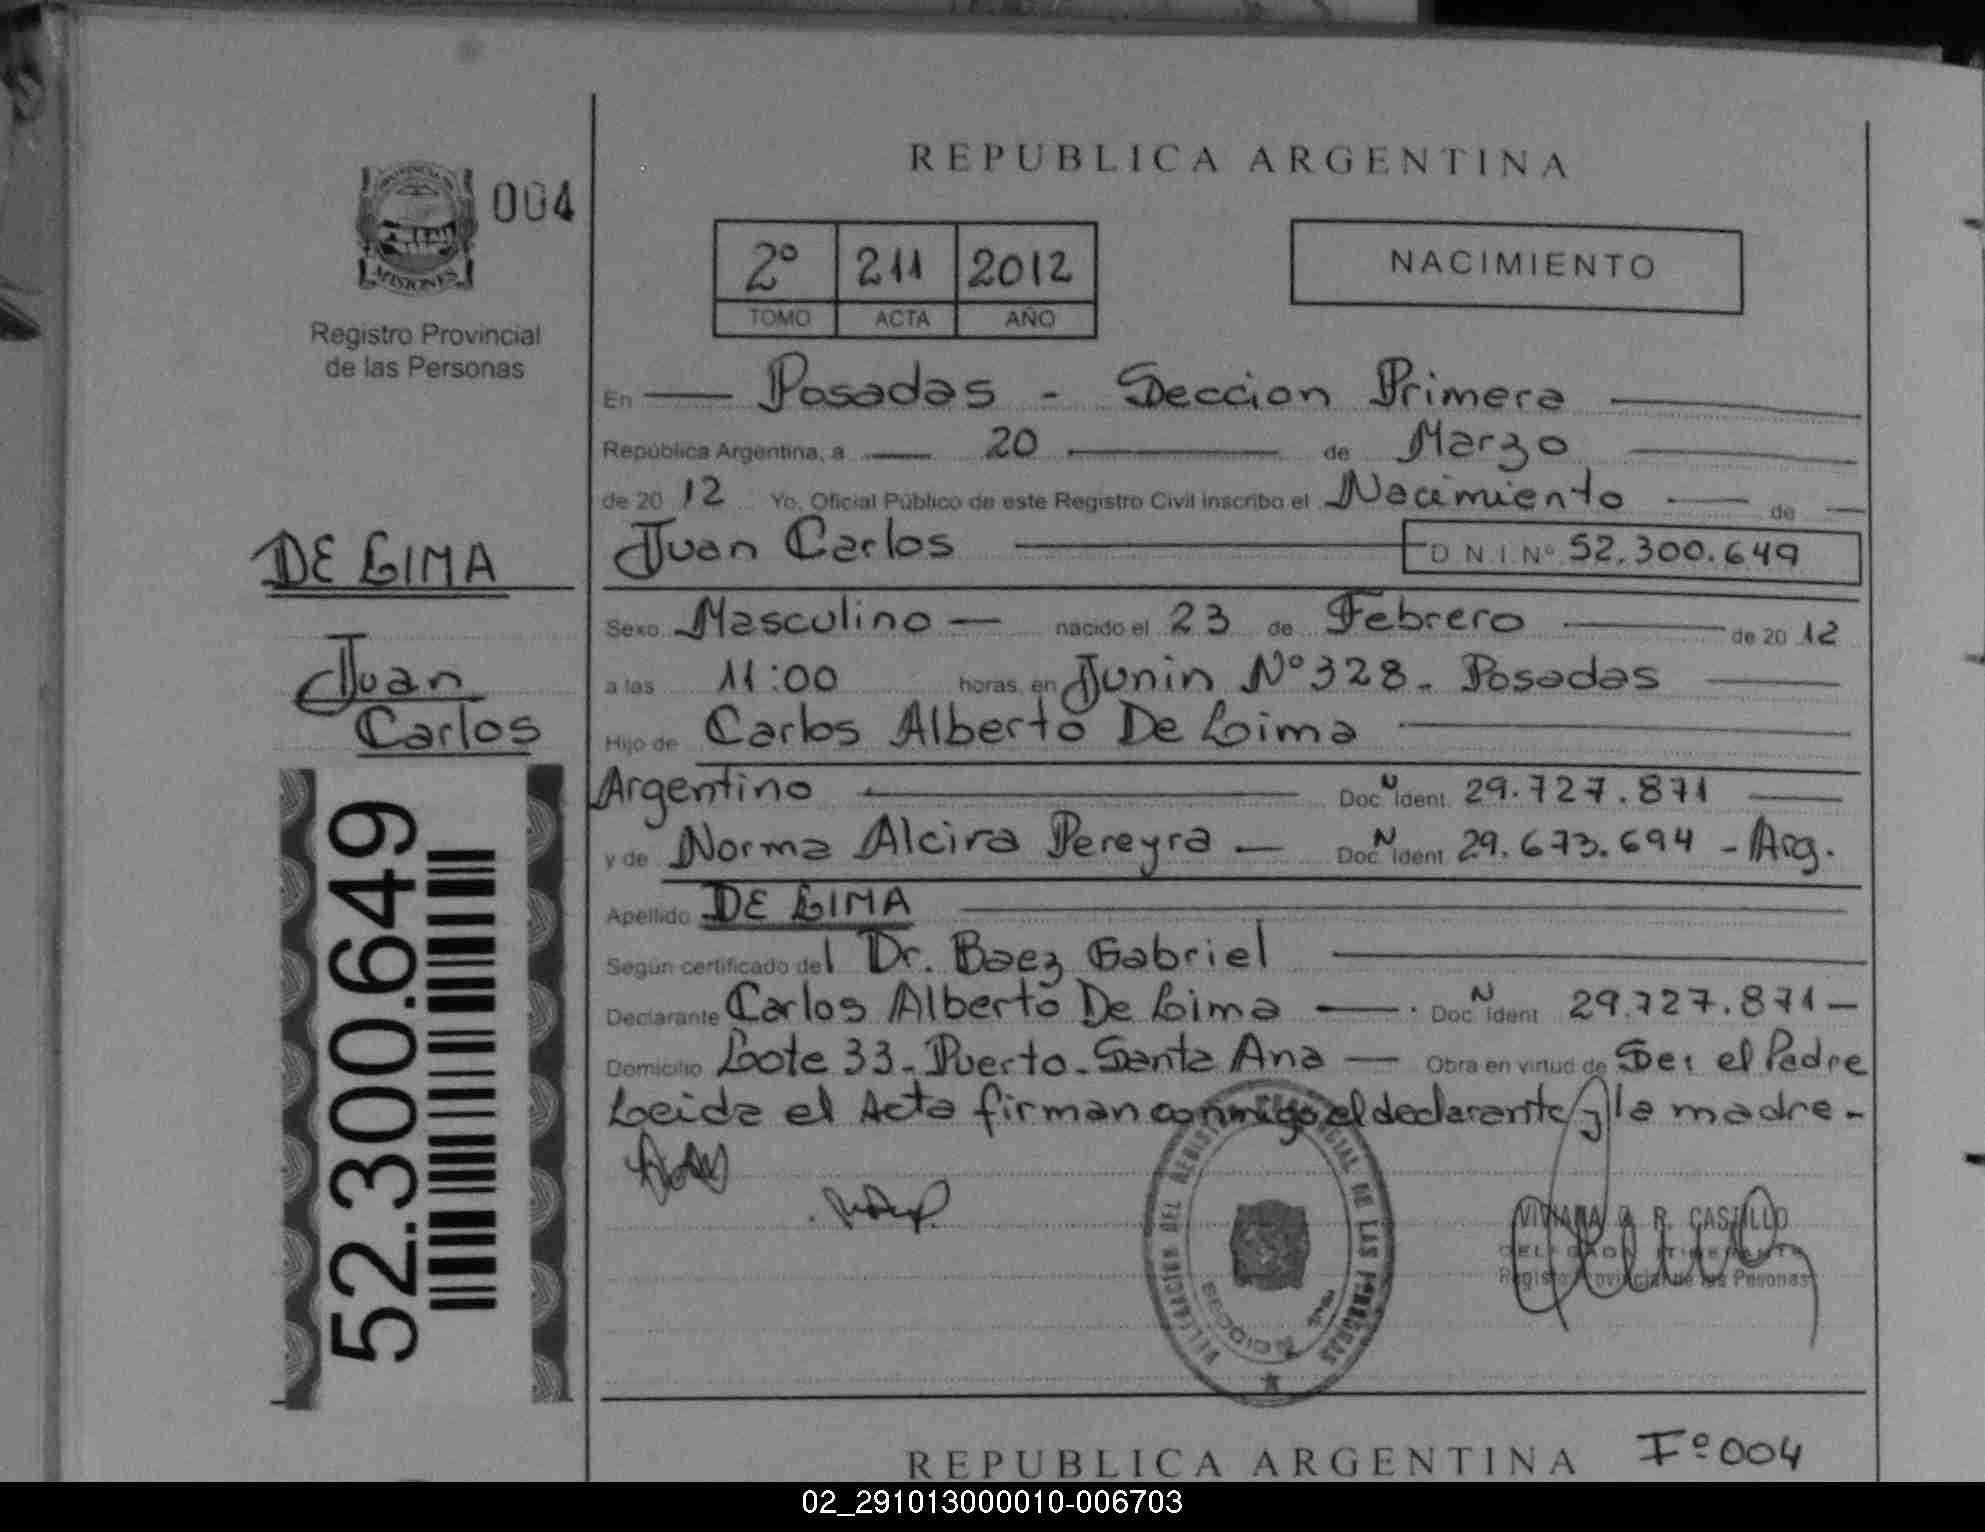 REPUBLICA ARGENTINA
004
MISIONES
Registro Provincial
de las Personas
2º 211 2012
TOMO ACTA AÑO
NACIMIENTO
En Posadas - Seccion Primera
República Argentina, a 20 de Marzo
de 20 12 Yo, Oficial Público de este Registro Civil inscribo el Nacimiento de
Juan Carlos D.N.I.Nº 52.300.649
Sexo Masculino nacido el 23 de Febrero de 20 12
a las 11:00 horas, en Junin Nº 328. Posadas
Hijo de Carlos Alberto De Lima
Argentino Doc. N Ident. 29.727.871
y de Norma Alcira Pereyra Doc. N Ident. 29.673.694 - Arg.
Apellido DE LIMA
Según certificado del Dr. Baez Gabriel
Declarante Carlos Alberto De Lima Doc. N Ident. 29.727.871
Domicilio Lote 33. Puerto. Santa Ana Obra en virtud de Ser el Padre
Leida el Acta firman conmigo el declarante y la madre.
DE LIMA
Juan
Carlos
52.300.649
DELEGACION DEL REGISTRO PROVINCIAL DE LAS PERSONAS
SECCION 1ra
VIVIANA R. CASTILLO
DELEGADA ITINERANTE
Registro Provincial de las Personas
REPUBLICA ARGENTINA Fº 004
02_291013000010-006703